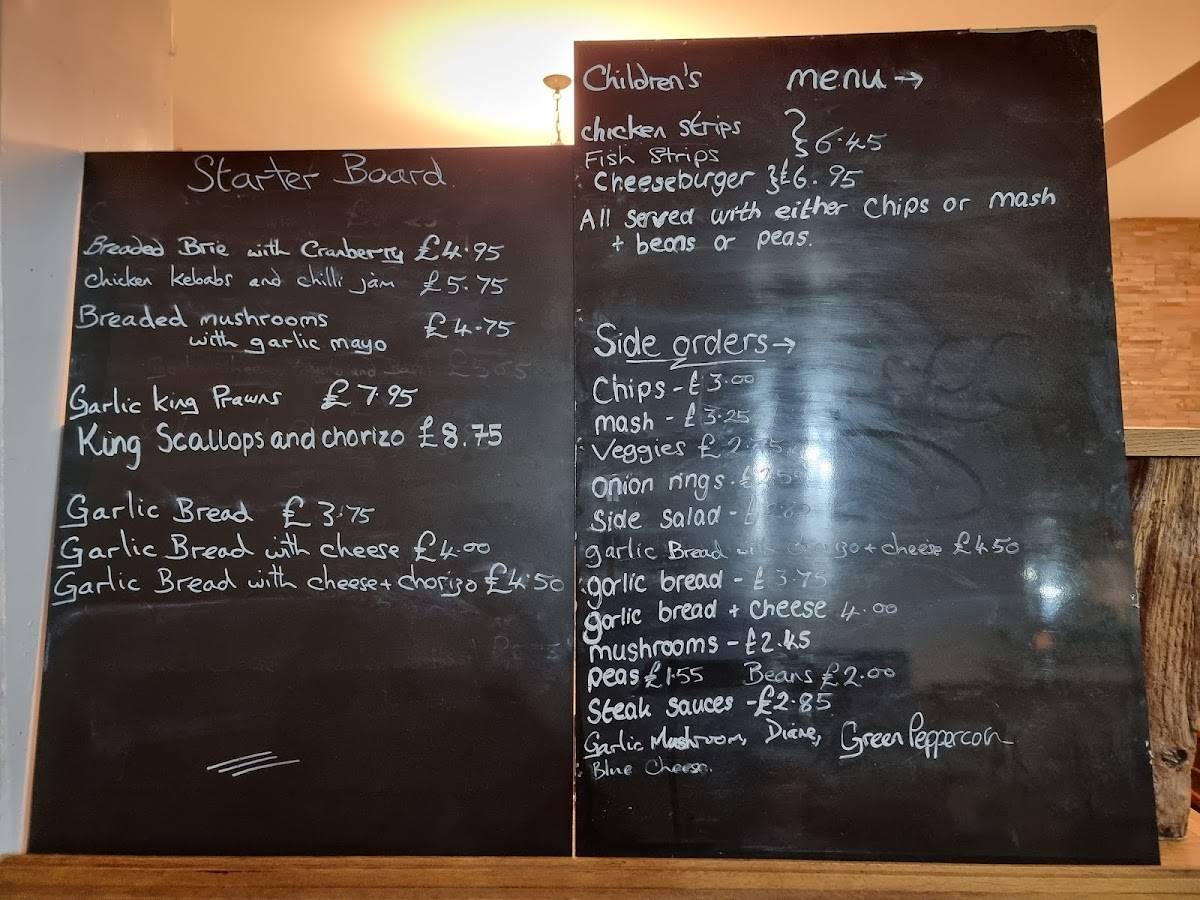 Starter Board
Breaded Brie with Cranberry £4.95
chicken kebabs and chilli jam £5.75
Breaded mushrooms £4.75
with garlic mayo
Garlic king Prawns £7.95
King Scallops and chorizo £8.75
Garlic Bread £3.75
Garlic Bread with cheese £4.00
Garlic Bread with cheese + chorizo £4.50
Children's menu →
chicken strips
Fish strips } £6.45
Cheeseburger } £6.95
All served with either chips or mash
+ beans or peas.
Side orders →
Chips - £3.00
mash - £3.25
Veggies £2.75
onion rings - £
Side salad - £
garlic Bread with chorizo + cheese £4.50
garlic bread - £3.75
garlic bread + cheese 4.00
mushrooms - £2.45
peas £1.55 Beans £2.00
Steak sauces - £2.85
Garlic Mushroom, Diane, Green Peppercorn
Blue Cheese.